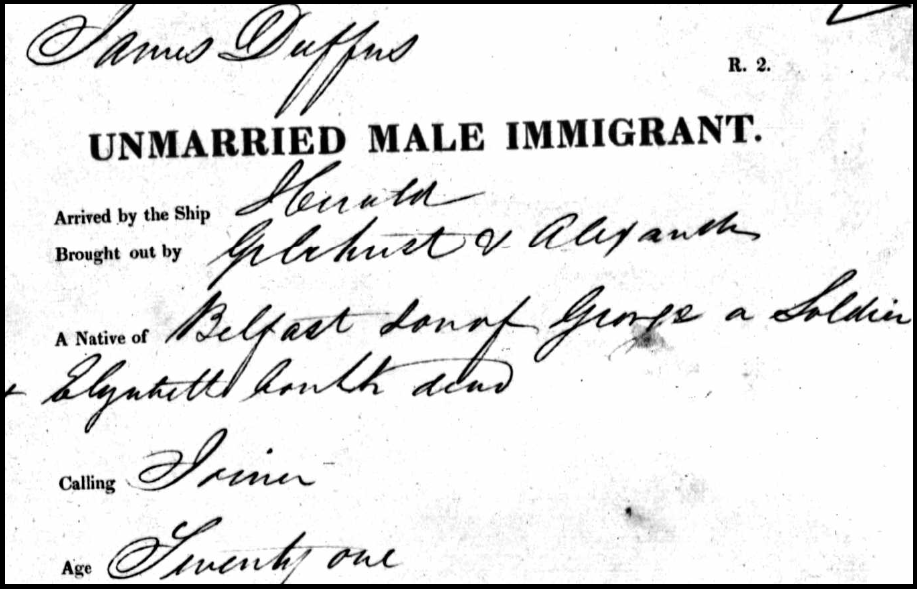 James Duffus
R. 2.
UNMARRIED MALE IMMIGRANT.
Arrived by the Ship Herald
Brought out by Gilchrist & Alexander
A Native of Belfast Son of George a Soldier
& Elizabeth dead
Calling Joiner
Age Twenty one